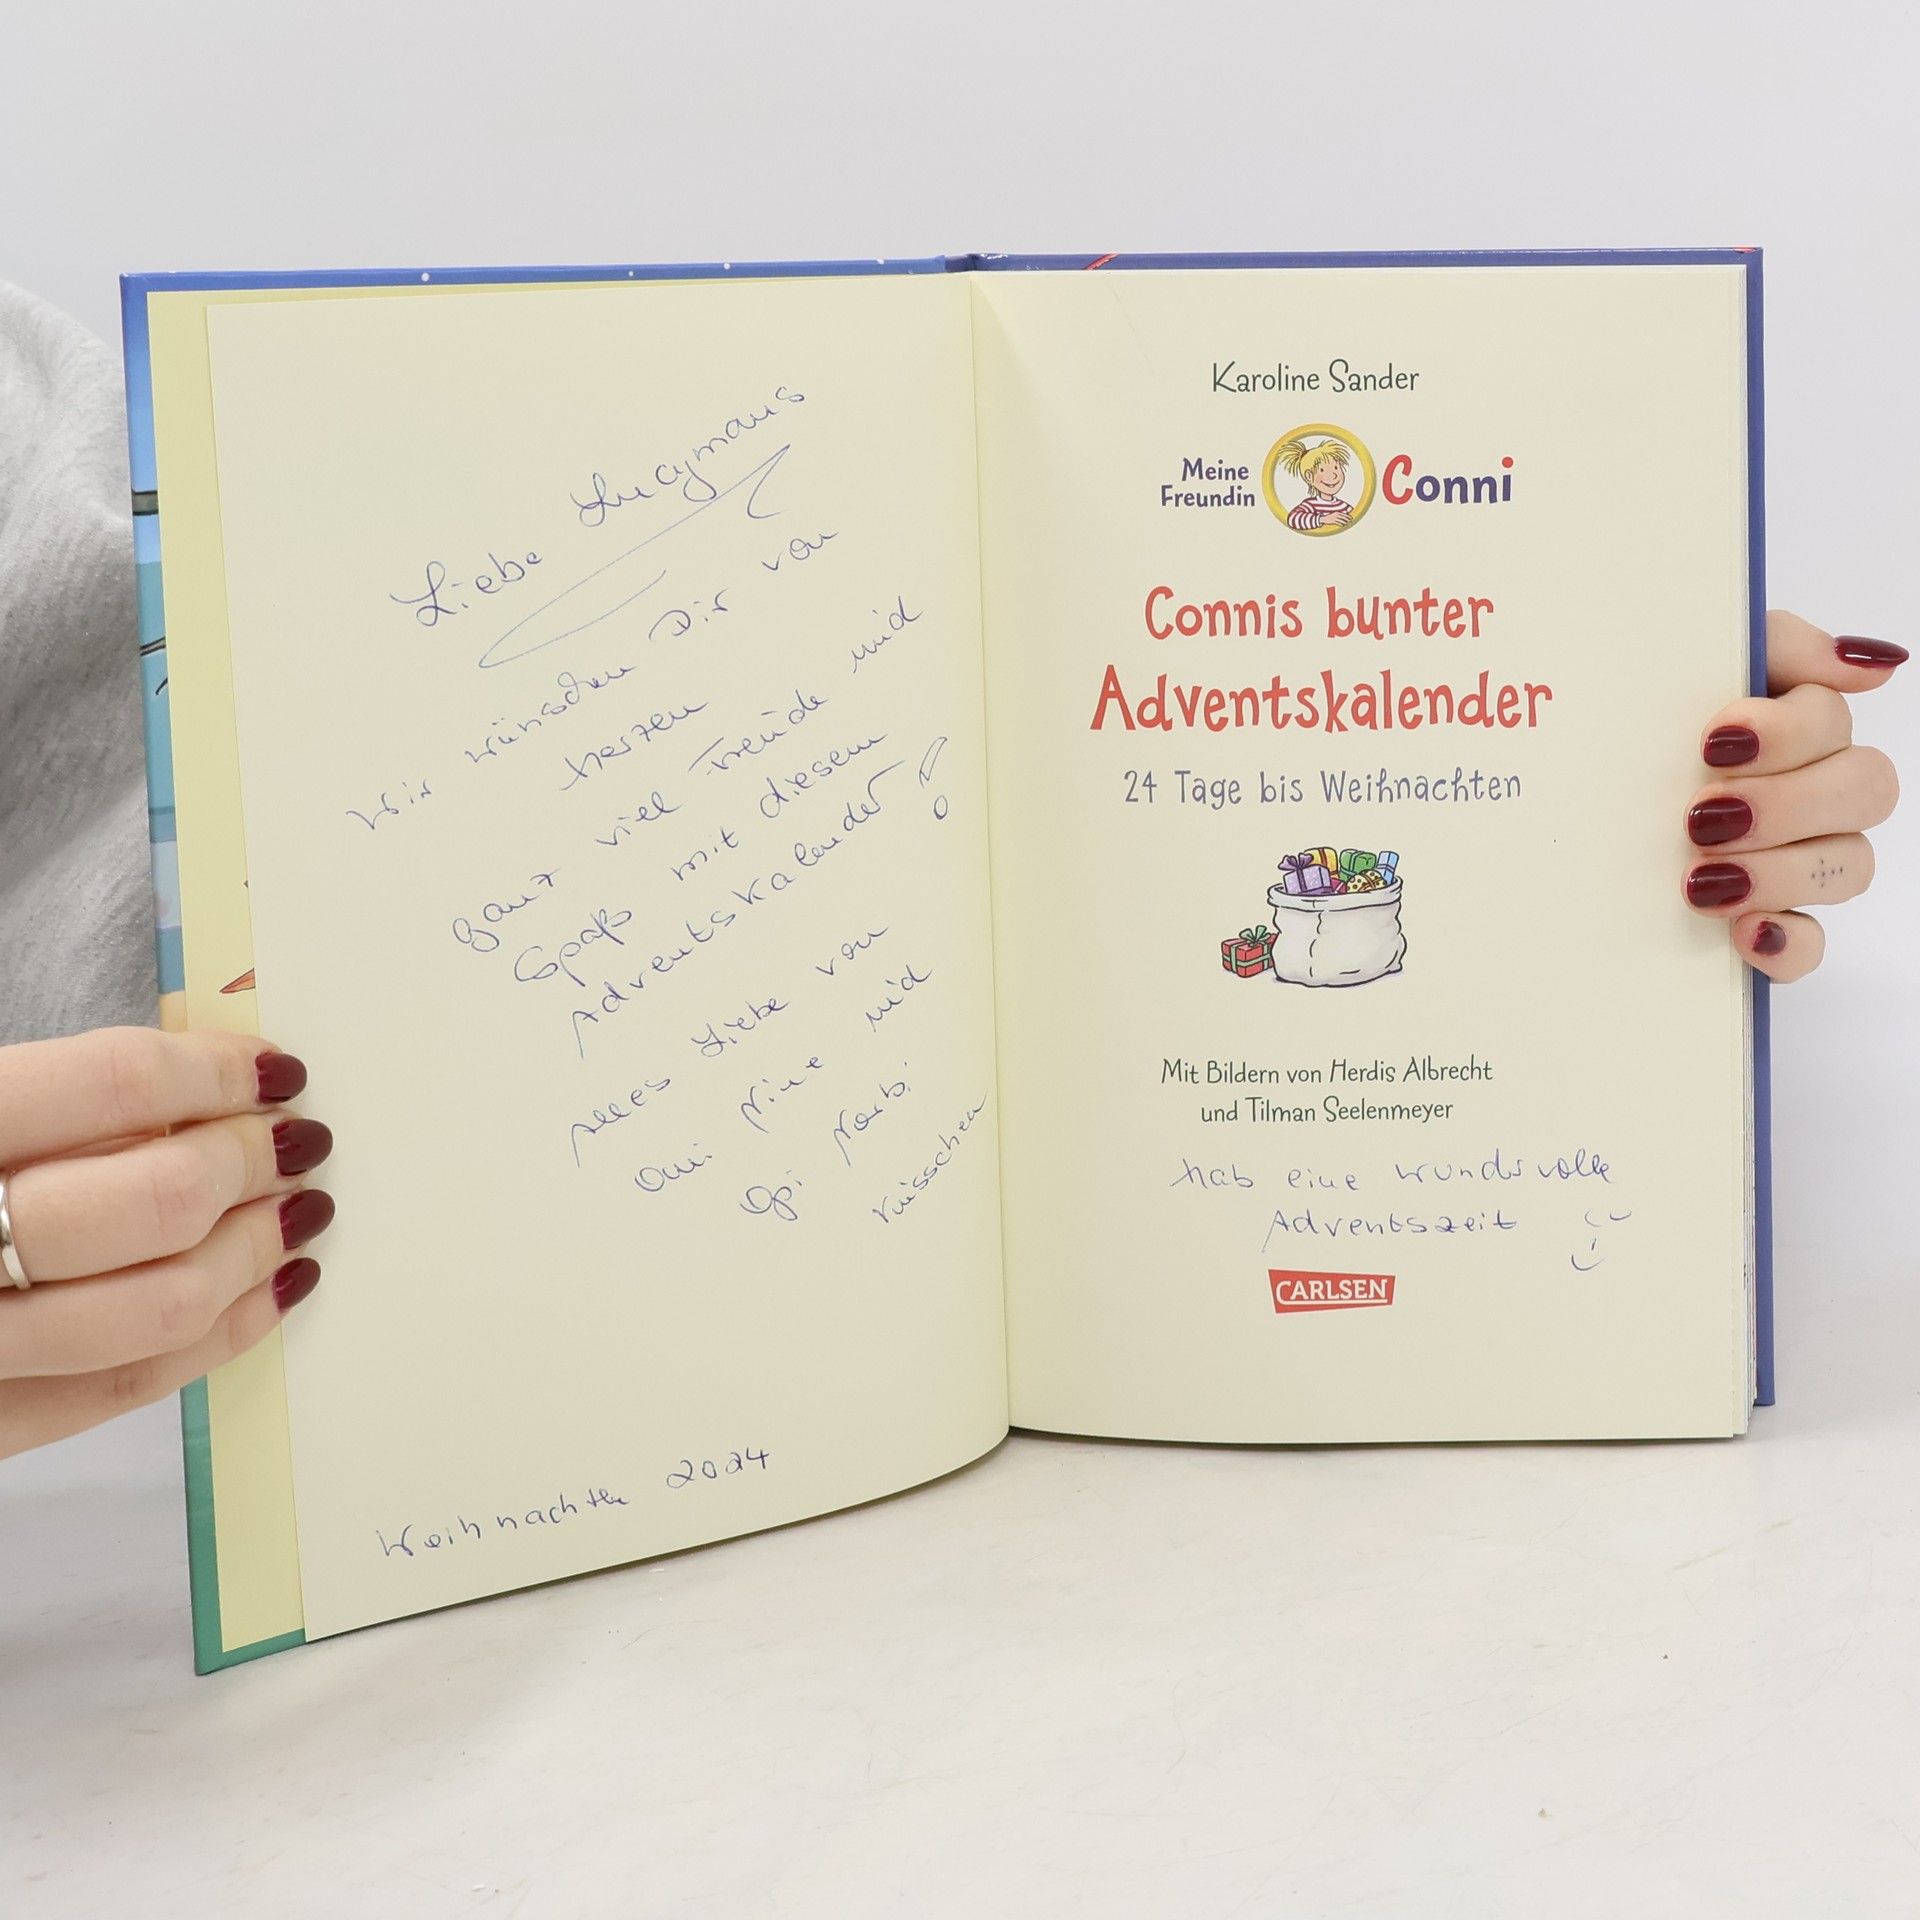 Liebe Lucymaus
Wir wünschen Dir von
Herzen
ganz viel Freude und
Spaß mit diesem
Adventskalender!
Alles Liebe von
Omi Nine und
Opi Norbi
Weihnachten 2024
Karoline Sander
Meine Freundin Conni
Connis bunter
Adventskalender
24 Tage bis Weihnachten
Mit Bildern von Herdis Albrecht
und Tilman Seelenmeyer
Hab eine wundervolle
Adventszeit
CARLSEN